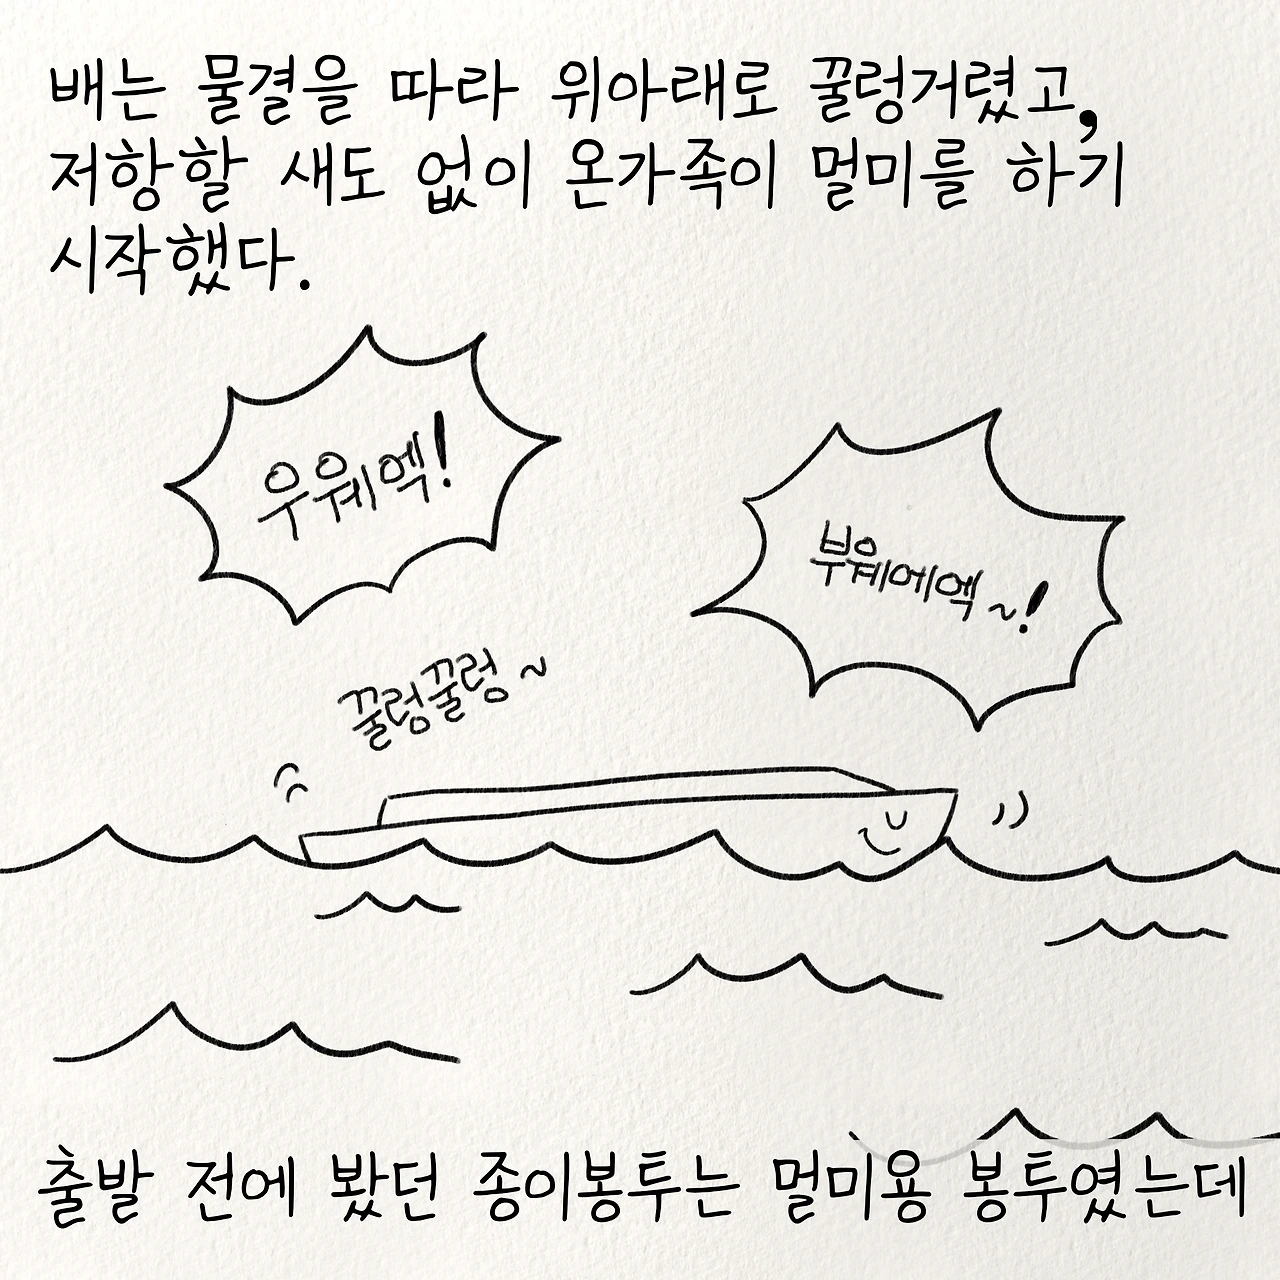 배는 물결을 따라 위아래로 꿀렁거렸고,
저항할 새도 없이 온가족이 멀미를 하기
시작했다.
우웨엑!
부웨에엑~!
꿀렁꿀렁~
출발 전에 봤던 종이봉투는 멀미용 봉투였는데